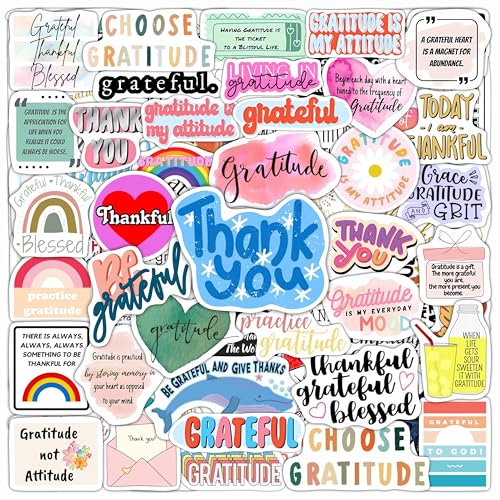 Grateful
Thankful
Blessed
CHOOSE
GRATITUDE
grateful.
HAVING GRATITUDE IS
THE TICKET
TO A BLISSFUL LIFE.
GRATITUDE IS
MY ATTITUDE
A GRATEFUL HEART
IS A MAGNET FOR
ABUNDANCE.
LIVING IN
gratitude
Begin each day with a heart
tuned to the frequency of
Gratitude
GRATITUDE IS THE
APPRECIATION FOR
LIFE WHEN YOU
REALIZE IT COULD
ALWAYS BE WORSE.
THANK
YOU
gratitude is
my attitude
grateful
TODAY
I am
THANKFUL
GRATITUDE
Gratitude
GRATITUDE
IS MY ATTITUDE
Grace
GRATITUDE
AND
GRIT
Grateful Thankful
Blessed
Thankful
Thank
you
THANK
YOU
Gratitude is a gift.
The more grateful
you are,
the more present you
become.
practice
gratitude
Be
grateful
gratitude
Gratitude
IS MY EVERYDAY
MOOD
THERE IS ALWAYS,
ALWAYS, ALWAYS
SOMETHING TO BE
THANKFUL FOR
Gratitude is practiced
by storing memory in
your heart as opposed
to your mind.
practice
gratitude
The W
BE GRATEFUL AND GIVE THANKS
Thankful
grateful
blessed
WHEN
LIFE
GETS SOUR
SWEETEN
IT WITH
GRATITUDE
Gratitude
not
Attitude
Thank you!
GRATEFUL
GRATITUDE
CHOOSE
GRATITUDE
GRATEFUL
TO GOD!